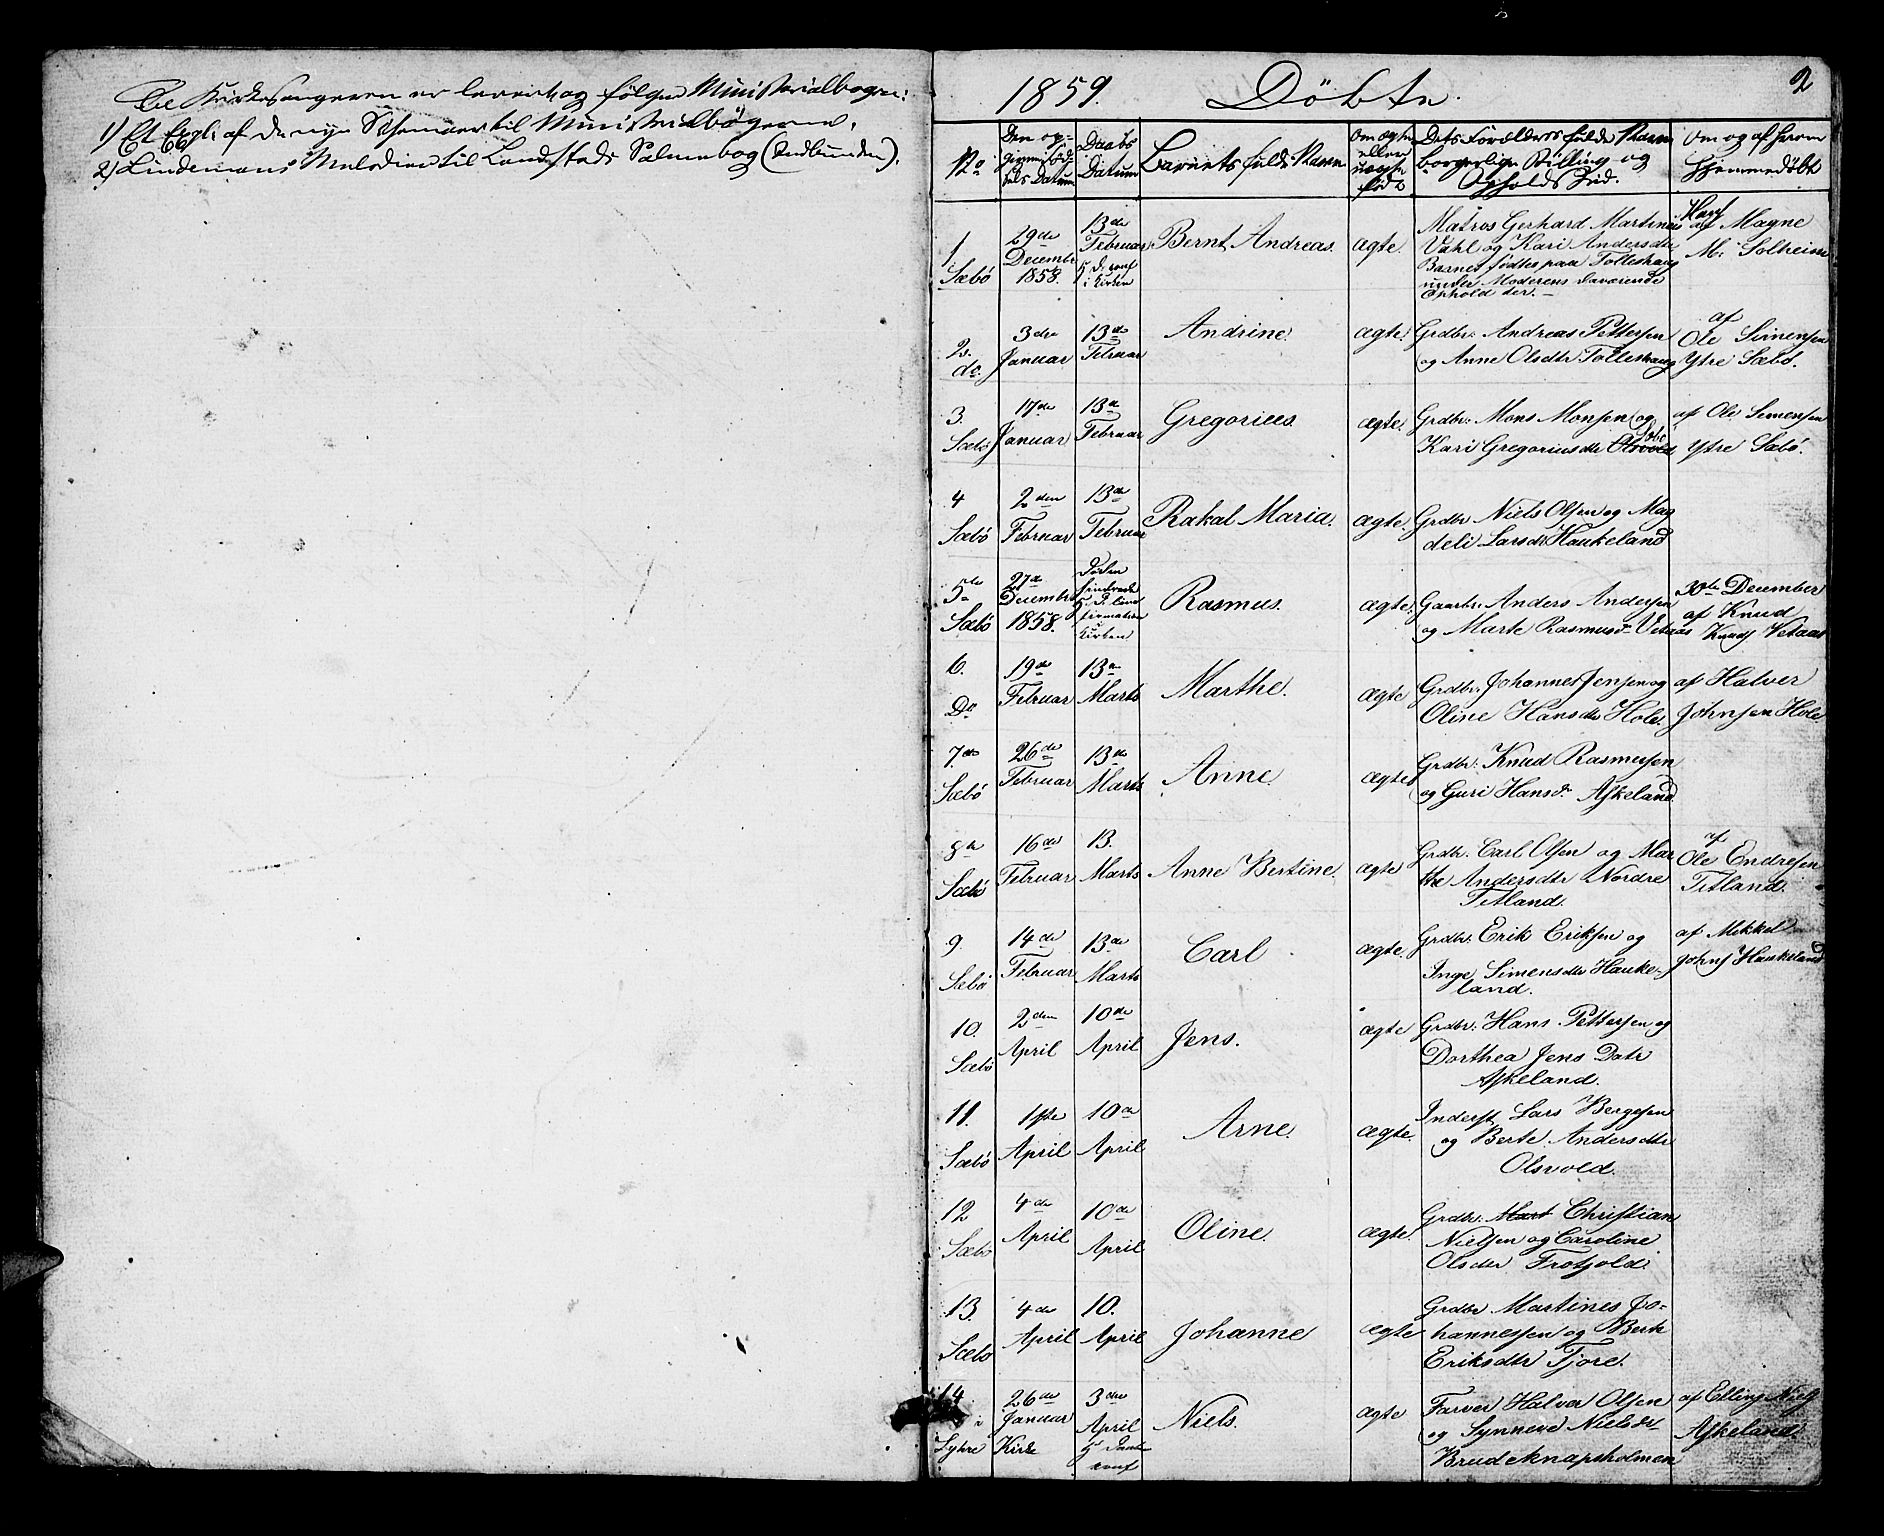 Til Kirkesangeren er leveret og følger Ministerialbogen:
1) Et Expl: af de nye Schemaer til Ministerialbøgerne,
2) Lindemans Melodier til Landstads Salmebog (indbunden).
1859. Döbte. 2
No
Den opgivne Fødsels Datum
Daabs Datum
Barnets fulde Navn
Om ægte eller uægte född
Dets Forældres fulde Navn borgerlige Stilling og Opholds Sted.
Om og af hvem Hjemmedöbt
1. Sæbö
29de Decembr 1858.
13de Februar
i Kirken
Bernt Andreas.
ægte.
Matros Gerhard Martinus
Vahl og Kari Andersdtr
Barnet fødtes paa Tolleshaug
under Moderens daværende
Ophold der.
Havf af Magne
M: Solheim
2. do.
3die Januar
13de Februar
Andrine.
ægte.
Grdbr. Andreas Pettersen
og Anne Olsdtr. Tolleshaug
af
Ole Simensen
Ytre Sæbö.
3. Sæbö
17de Januar
13de Februar
Gregorius
ægte.
Grdbr. Mons Monsen og
Kari Gregoriusdtr Olsvold
af Ole Simensen
Ytre Sæbö.
4 Sæbö
2den Februar
13de Februar
Rakal Maria.
ægte.
Grdbr. Niels Olsen og Mag
deli Larsdtr Haukeland
5te Sæbö
27de Decembr 1858.
Kirken
Rasmus.
ægte.
Gaardbr. Anders Andersen
og Marte Rasmusdr Vetaas
30te December
af Knud
Knuds Vetaas
6. Do
19de Februar
13de Marts
Marthe.
ægte
Grdbr. Johannes Jensen og
Oline Hansdtr Hole.
af Halver
Johnsen Hole
7de Sæbö
26de Februar
13de Marts
Anne.
ægte
Grdbr. Knud Rasmusen
og Guri Hansdr. Askeland
8de Sæbö
16de Februar
13. Marts
Anne Bertine.
ægte
Grdbr. Carl Olsen og Mar
the Andersdtr Nordre
Titland.
af
Ole Endresen
Titland.
9. Sæbö
14de Februar
13de Marts
Carl
ægte.
Grdbr. Erik Eriksen og
Inge Simensdtr Hauke-
land.
af Mikkel
Johns Haukeland
10. Sæbö
2den April
10de April
Jens.
ægte
Grdbr. Hans Pettersen og
Dorthea Jens Datr
Askeland.
11. Sæbö
1ste April
10de April
Arne.
ægte.
Inderst Lars Bergesen
og Berte Andersdtr
Olsvold.
12 Sæbö
4de April
10de April
Oline.
ægte.
Grdbr. Mart Christian
Nielsen og Caroline
Olsdtr Frotjold.
13. Sæbö
4de April
10. April
Johanne
ægte
Grdbr Martines Jo-
hannessen og Berte
Eriksdtr Tjore.
14 i Lygre Kirke
26de Januar
3die April
Niels.
ægte
Farver Halvor Olsen
og Synneve Nielsdr
Brudeknapholmen
af Elling Niels
Askeland.